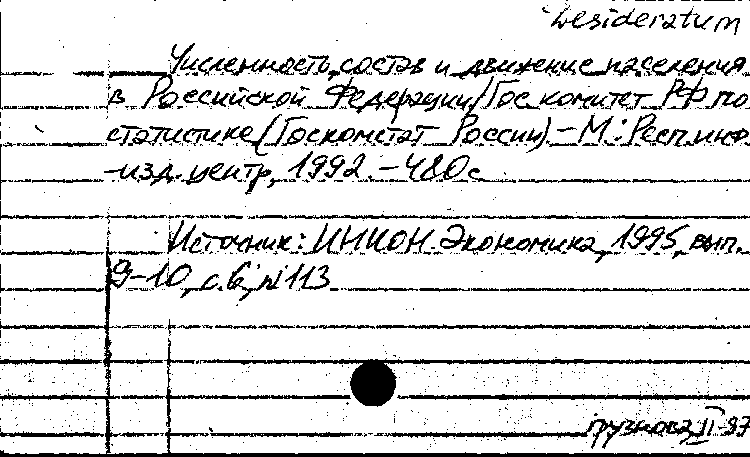 Desideratum
Численность, состав и движение населения
в Российской Федерации/Гос.комитет РФ по
статистике (Госкомстат России).-М.:Респ.инф.
-изд.центр, 1992.-480с
Источник: ИНИОН. Экономика, 1995, вып.
9-10, с.6, №113
Грузнова II-97